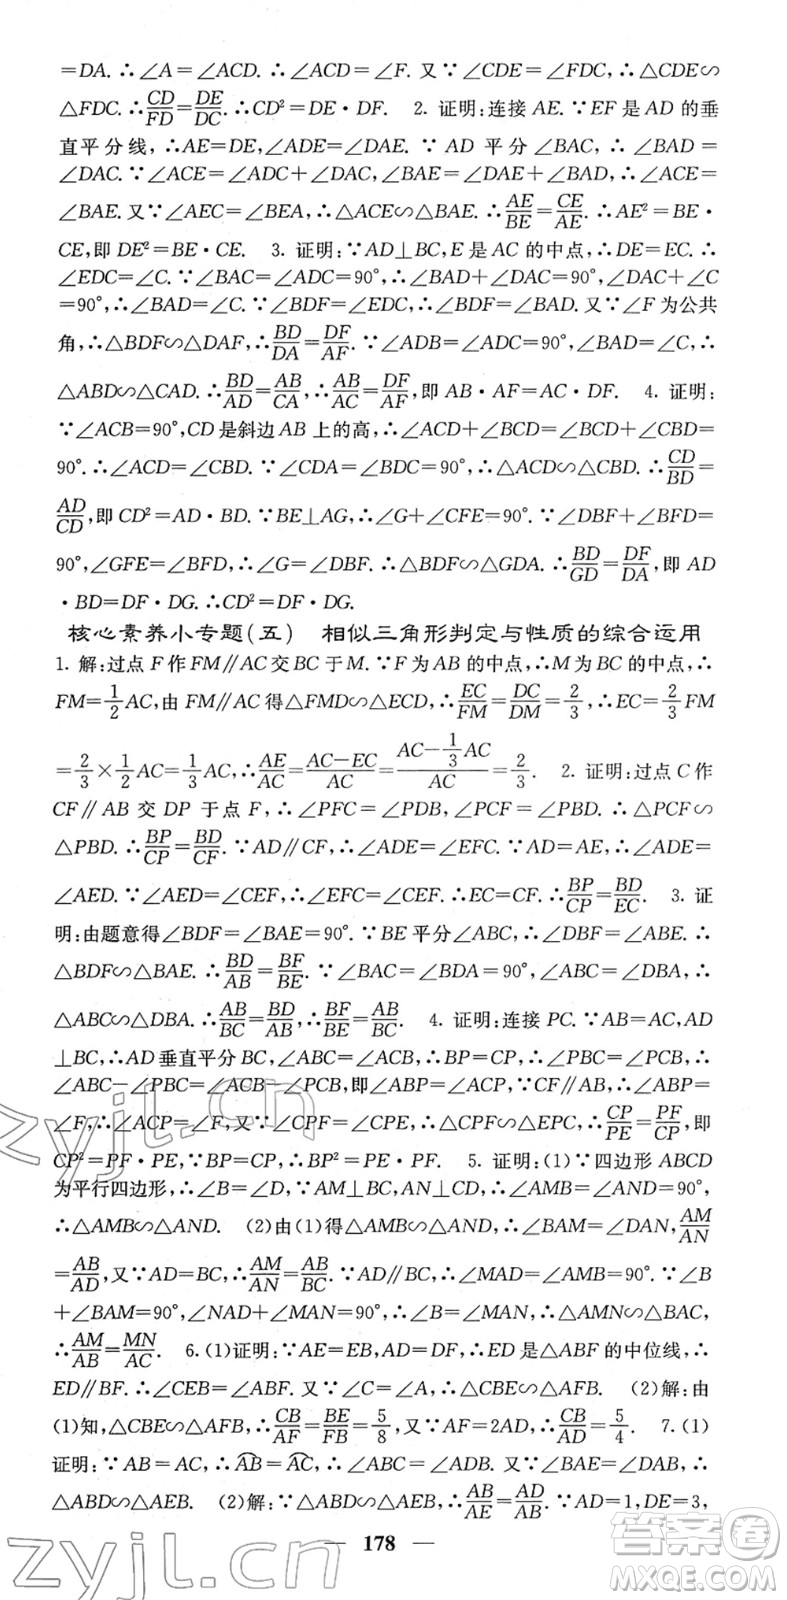 =DA. ∴∠A=∠ACD. ∴∠ACD=∠F. 又∵∠CDE=∠FDC, ∴△CDE∽
△FDC. ∴CD/FD=DE/DC. ∴CD²=DE·DF. 2. 证明:连接 AE. ∵EF 是 AD 的垂
直平分线, ∴AE=DE, ∠ADE=∠DAE. ∵ AD 平分∠BAC, ∴∠BAD=
∠DAC. ∵∠ACE=∠ADC+∠DAC, ∠BAE=∠DAE+∠BAD, ∴∠ACE=
∠BAE. 又∵∠AEC=∠BEA, ∴△ACE∽△BAE. ∴AE/BE=CE/AE. ∴AE²=BE·
CE, 即 DE²=BE·CE. 3. 证明:∵AD⊥BC, E 是 AC 的中点, ∴DE=EC. ∴
∠EDC=∠C. ∵∠BAC=∠ADC=90°, ∴∠BAD+∠DAC=90°, ∠DAC+∠C
=90°, ∴∠BAD=∠C. ∵∠BDF=∠EDC, ∴∠BDF=∠BAD. 又∵∠F 为公共
角, ∴△BDF∽△DAF, ∴BD/DA=DF/AF. ∵∠ADB=∠ADC=90°, ∠BAD=∠C, ∴
△ABD∽△CAD. ∴BD/AD=AB/CA, ∴AB/AC=DF/AF, 即 AB·AF=AC·DF. 4. 证明:
∵∠ACB=90°, CD 是斜边 AB 上的高, ∴∠ACD+∠BCD=∠BCD+∠CBD=
90°. ∴∠ACD=∠CBD. ∵∠CDA=∠BDC=90°, ∴△ACD∽△CBD. ∴CD/BD=
AD/CD, 即 CD²=AD·BD. ∵BE⊥AG, ∴∠G+∠CFE=90°. ∵∠DBF+∠BFD=
90°, ∠GFE=∠BFD, ∴∠G=∠DBF. ∴△BDF∽△GDA. ∴BD/GD=DF/DA, 即 AD
·BD=DF·DG. ∴CD²=DF·DG.
核心素养小专题(五) 相似三角形判定与性质的综合运用
1. 解:过点 F 作 FM∥AC 交 BC 于 M. ∵F 为 AB 的中点, ∴M 为 BC 的中点, ∴
FM=1/2AC, 由 FM∥AC 得△FMD∽△ECD, ∴EC/FM=DC/DM=2/3, ∴EC=2/3FM
=2/3×1/2AC=1/3AC, ∴AE/AC=(AC-EC)/AC=(AC-1/3AC)/AC=2/3. 2. 证明:过点 C 作
CF∥AB 交 DP 于点 F, ∴∠PFC=∠PDB, ∠PCF=∠PBD. ∴△PCF∽
△PBD. ∴BP/CP=BD/CF. ∵AD∥CF, ∴∠ADE=∠EFC. ∵AD=AE, ∴∠ADE=
∠AED. ∵∠AED=∠CEF, ∴∠EFC=∠CEF. ∴EC=CF. ∴BP/CP=BD/EC. 3. 证
明:由题意得∠BDF=∠BAE=90°. ∵BE 平分∠ABC, ∴∠DBF=∠ABE. ∴
△BDF∽△BAE. ∴BD/AB=BF/BE. ∵∠BAC=∠BDA=90°, ∠ABC=∠DBA, ∴
△ABC∽△DBA. ∴AB/BC=BD/AB, ∴BF/BE=AB/BC. 4. 证明:连接 PC. ∵AB=AC, AD
⊥BC, ∴AD 垂直平分 BC, ∠ABC=∠ACB, ∴BP=CP, ∴∠PBC=∠PCB, ∴
∠ABC-∠PBC=∠ACB-∠PCB, 即∠ABP=∠ACP, ∵CF∥AB, ∴∠ABP=
∠F, ∴∠ACP=∠F, 又∵∠CPF=∠CPE, ∴△CPF∽△EPC, ∴CP/PE=PF/CP, 即
CP²=PF·PE, ∵BP=CP, ∴BP²=PE·PF. 5. 证明:(1)∵四边形 ABCD
为平行四边形, ∴∠B=∠D, ∵AM⊥BC, AN⊥CD, ∴∠AMB=∠AND=90°,
∴△AMB∽△AND. (2)由(1)得△AMB∽△AND, ∴∠BAM=∠DAN, AM/AN
=AB/AD, 又∵AD=BC, ∴AM/AN=AB/BC. ∵AD∥BC, ∴∠MAD=∠AMB=90°. ∵∠B
+∠BAM=90°, ∠NAD+∠MAN=90°, ∴∠B=∠MAN, ∴△AMN∽△BAC,
∴AM/AB=MN/AC. 6. (1)证明:∵AE=EB, AD=DF, ∴ED 是△ABF 的中位线, ∴
ED∥BF. ∴∠CEB=∠ABF. 又∵∠C=∠A, ∴△CBE∽△AFB. (2)解:由
(1)知, △CBE∽△AFB, ∴CB/AF=BE/FB=5/8, 又∵AF=2AD, ∴CB/AD=5/4. 7. (1)
证明:∵AB=AC, ∴AB=AC, ∴∠ABC=∠ADB. 又∵∠BAE=∠DAB, ∴
△ABD∽△AEB. (2)解:∵△ABD∽△AEB, ∴AB/AE=AD/AB. ∵AD=1, DE=3,
— 178 —
zyjl.cn
zyjl.cn
答案卷
MXQE.COM